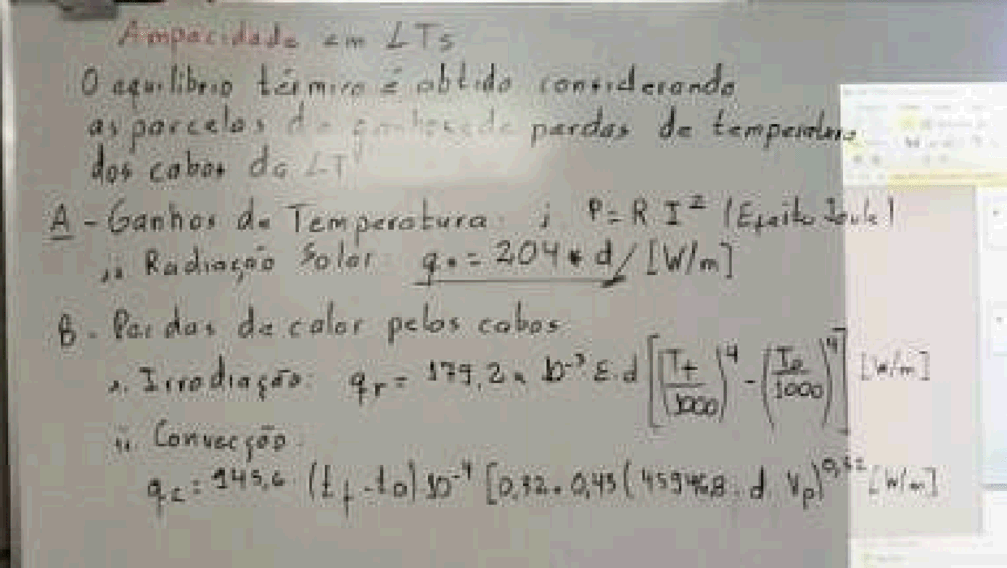 Ampacidade em LTs
O equilíbrio térmico é obtido considerando
as parcelas de ganhos e de perdas de temperatura
dos cabos da LT
A - Ganhos de Temperatura: i P = R I² (Efeito Joule)
ii Radiação Solar: q = 204 * d / [W/m]
B - Perdas de calor pelos cabos
i. Irradiação: qr = 179,2 x 10⁻³ ε.d [(Tf/1000)⁴ - (Ta/1000)⁴] [W/m]
ii. Convecção
qc = 945,6 (tf - ta) 10⁻⁴ [0,32 + 0,43 (45946,8 . d. Vp)⁰,⁵² [W/m]